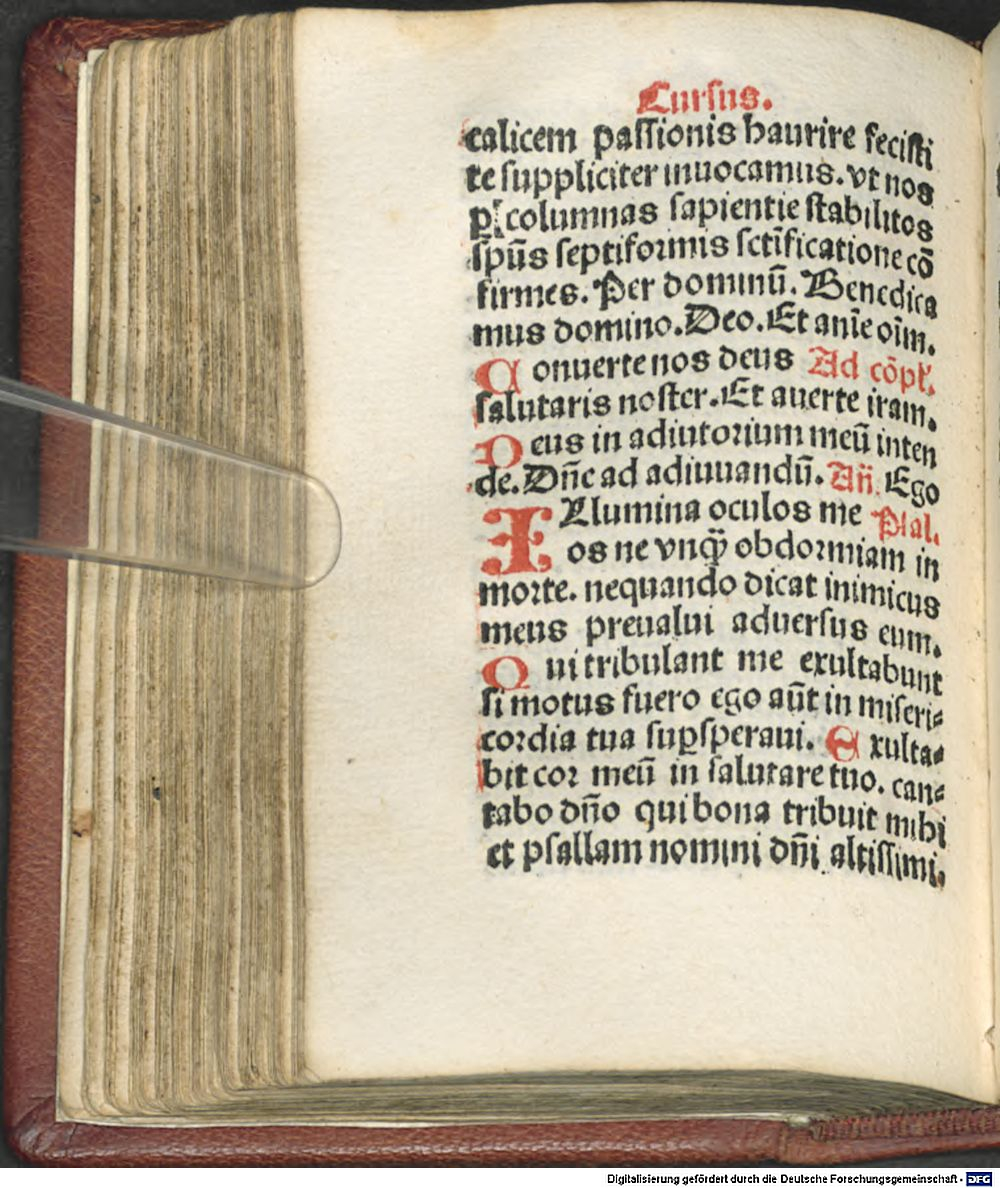 Cursus.
calicem passionis haurire fecisti
te suppliciter inuocamus. vt nos
columnas sapientie stabilitos
spūs septiformis sctīficatione cō
firmes. Per dominū. Benedica
mus domino. Deo. Et anīe oīm.
Conuerte nos deus Ad cōpł.
salutaris noster. Et auerte iram.
Deus in adiutorium meū inten
de. Dn̄e ad adiuuandū. Añ. Ego
Illumina oculos me Psal.
os ne vnq̄ obdormiam in
morte. nequando dicat inimicus
meus preualui aduersus eum.
Qui tribulant me exultabunt
si motus fuero ego aūt in miseri=
cordia tua suꝑsperaui. Exulta=
bit cor meū in salutare tuo. can=
tabo dn̄o qui bona tribuit mihi
et psallam nomini dn̄i altissimi.
Digitalisierung gefördert durch die Deutsche Forschungsgemeinschaft - DFG